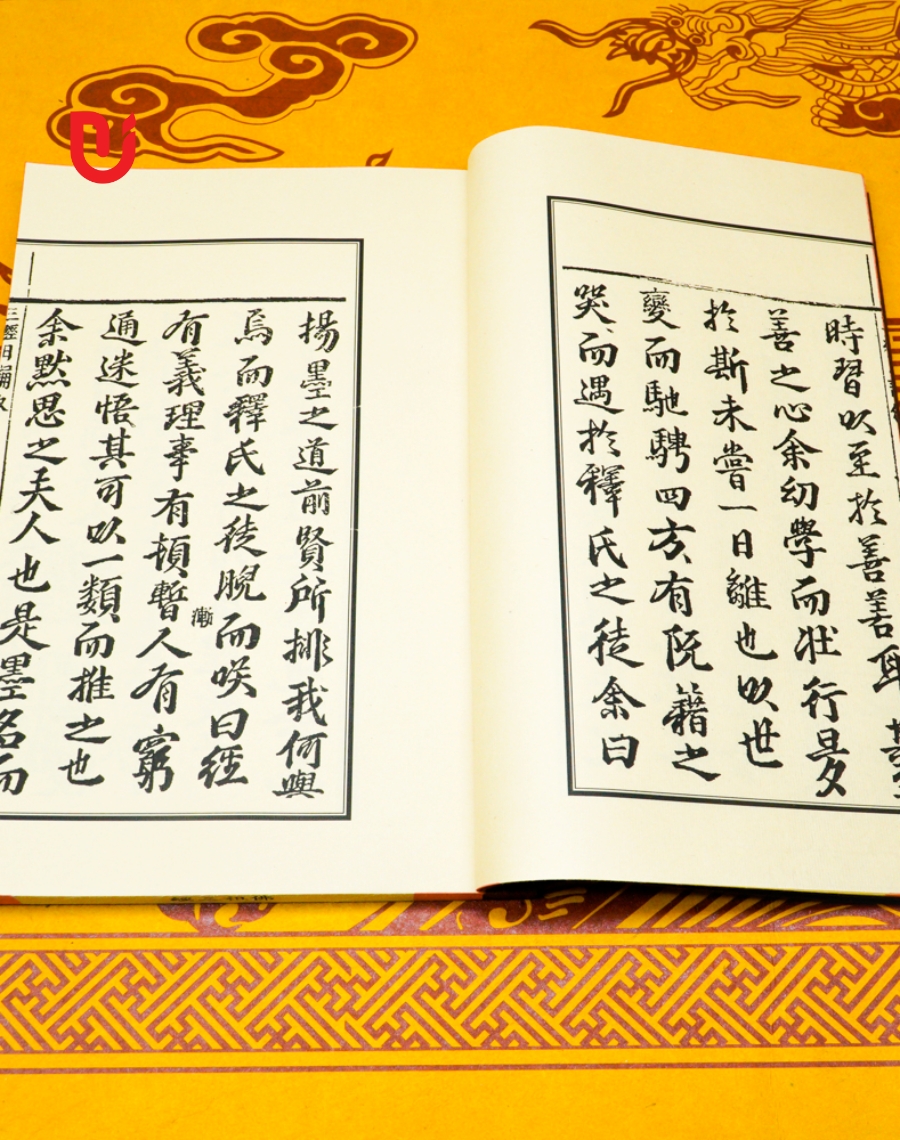 時習㕥至於善善耳
善之心余幼學而壯行
於斯未嘗一日離也㕥世
變而馳騁四方有阮籍之
哭而遇於釋氏之徒余曰
揚墨之道前賢所排我何與
焉而釋氏之徒睨而咲曰經
有義理事有頓暫人有窮
漸
通迷悟其可㕥一類而推之也
余默思之夫人也是墨名而